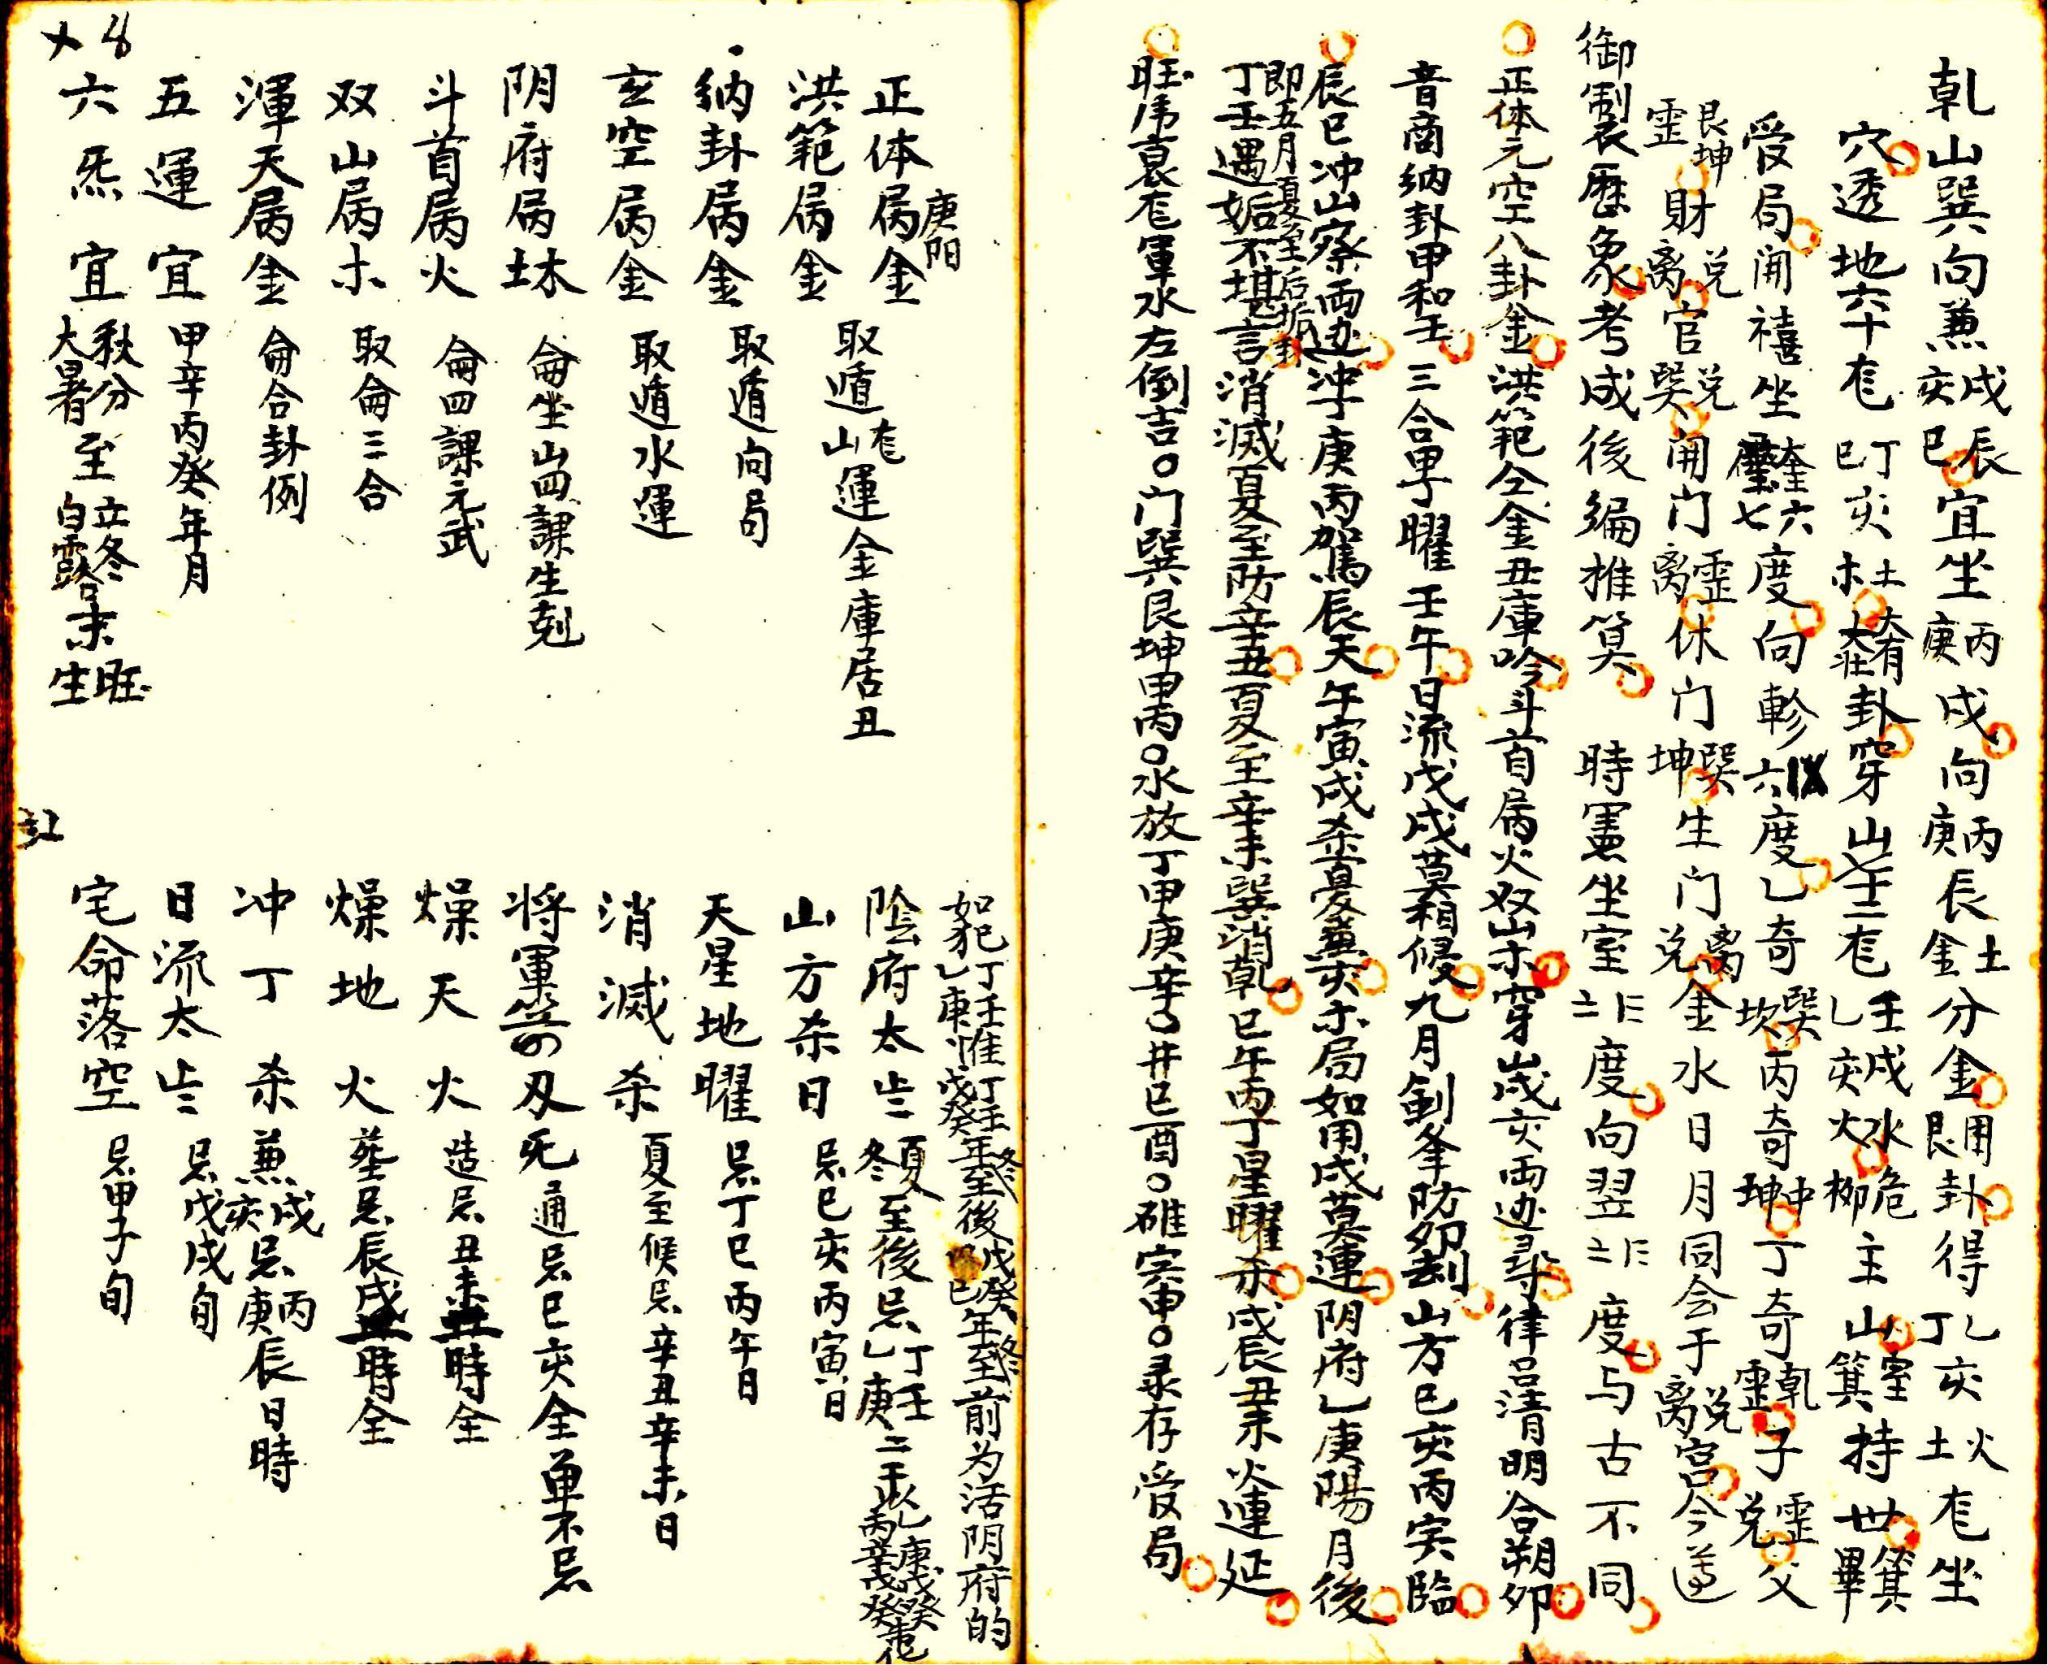 乹山巽向兼戌辰亥巳宜坐丙庚戌向丙庚辰土金分金用艮卦得乙丁亥火土㐌坐
穴透地六十㐌丁巳亥土木大有大壯卦穿山七十二㐌壬乙戌亥水火危柳主山室箕持世箕畢
受局開禧坐奎六壁七度向軫六度乙奇巽坎丙奇中坤丁奇乹霊子霊兑父
艮坤霊財兑离官兑巽開门霊离休门巽坤生门离兑金水日月同会于兑离宫今遵
御制曆象考成後编推算 時憲坐室度向翌度与古不同
正体元空八卦金洪範仝金丑庫吟斗首局火双山木穿山戌亥両边尋律吕清明合朔夘
音商纳卦甲和壬三合甲子曜壬午日流戊戌莫相侵九月劍筝防夘刦山方巳亥丙寅臨
辰巳冲山察両边冲丁庚丙駕辰天午寅戌杀憂兼亥木局如用戌莫連阴府乙庚陽月後
即五月夏至后垢卦
丁壬遇姤不堪言消滅夏至防辛丑夏至辛未巽消乹巳午丙丁星曜杀戌辰丑未火連延
旺房衰㐌軍水左倒吉○门巽艮坤甲丙○水放丁甲庚辛丂井巳酉○碓寅申○录存受局
正体局金 庚阳 取遁㐌山運金庫居丑
洪範局金
纳卦局金 取遁向局
玄空局金 取遁水運
阴府局土木 侖坐山四課生剋
斗首局火 侖四課元武
双山局木 取侖三合
渾天局金 侖合卦例
五運宜 甲辛丙癸年月
六炁宜 秋分大暑至立冬白露末旺生
如犯丁壬乙庚惟丁壬戊癸年冬至後戊癸巳年冬至前为活阴府的
陰府太岁 夏冬至後忌丁壬乙庚二干
山方杀日 忌巳亥丙寅日
天星地曜 忌丁巳丙午日
消滅杀 夏至候忌辛丑辛未日
将軍箭刃 死通忌巳亥全单不忌
燥天火 造忌丑未時全
燥地火 塟忌辰戌時全
冲丁杀 兼戌亥忌丙庚辰日時
日流太岁 忌戊戌旬
宅命落空 忌甲子旬